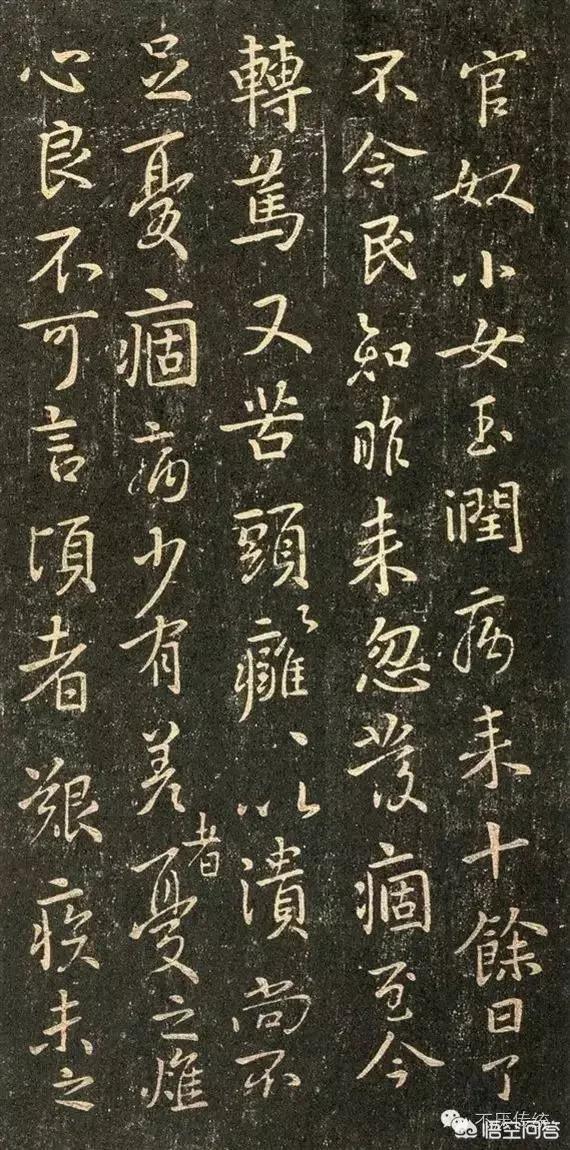 官奴小女玉潤病来十餘日了
不令民知昨来忽發痼至今
轉篤又苦頭〻癰〻以潰尚不
足憂痼病少有差者憂之燋
心良不可言頃者艱疾未之
不厌传统
悟空问答